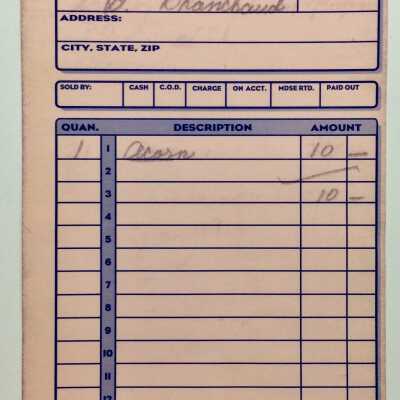 ADDRESS:
CITY, STATE, ZIP
SOLD BY: CASH C.O.D. CHARGE ON ACCT. MDSE RTD. PAID OUT
QUAN. DESCRIPTION AMOUNT
1 1 Acorn 10 —
2
3 10 —
4
5
6
7
8
9
10
11
12